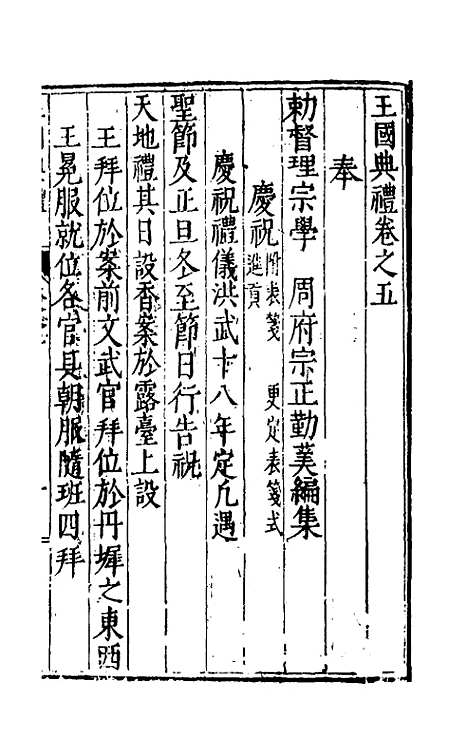 王國典禮卷之五
奉
勅督理宗學　周府宗正勤羙編集
慶祝附表箋　更定表箋式
進貢
慶祝禮儀洪武十八年定凡遇
聖節及正旦冬至節日行告祝
天地禮其日設香案於露臺上設
王拜位於案前文武官拜位於丹墀之東西
王冕服就位各官具朝服隨班四拜